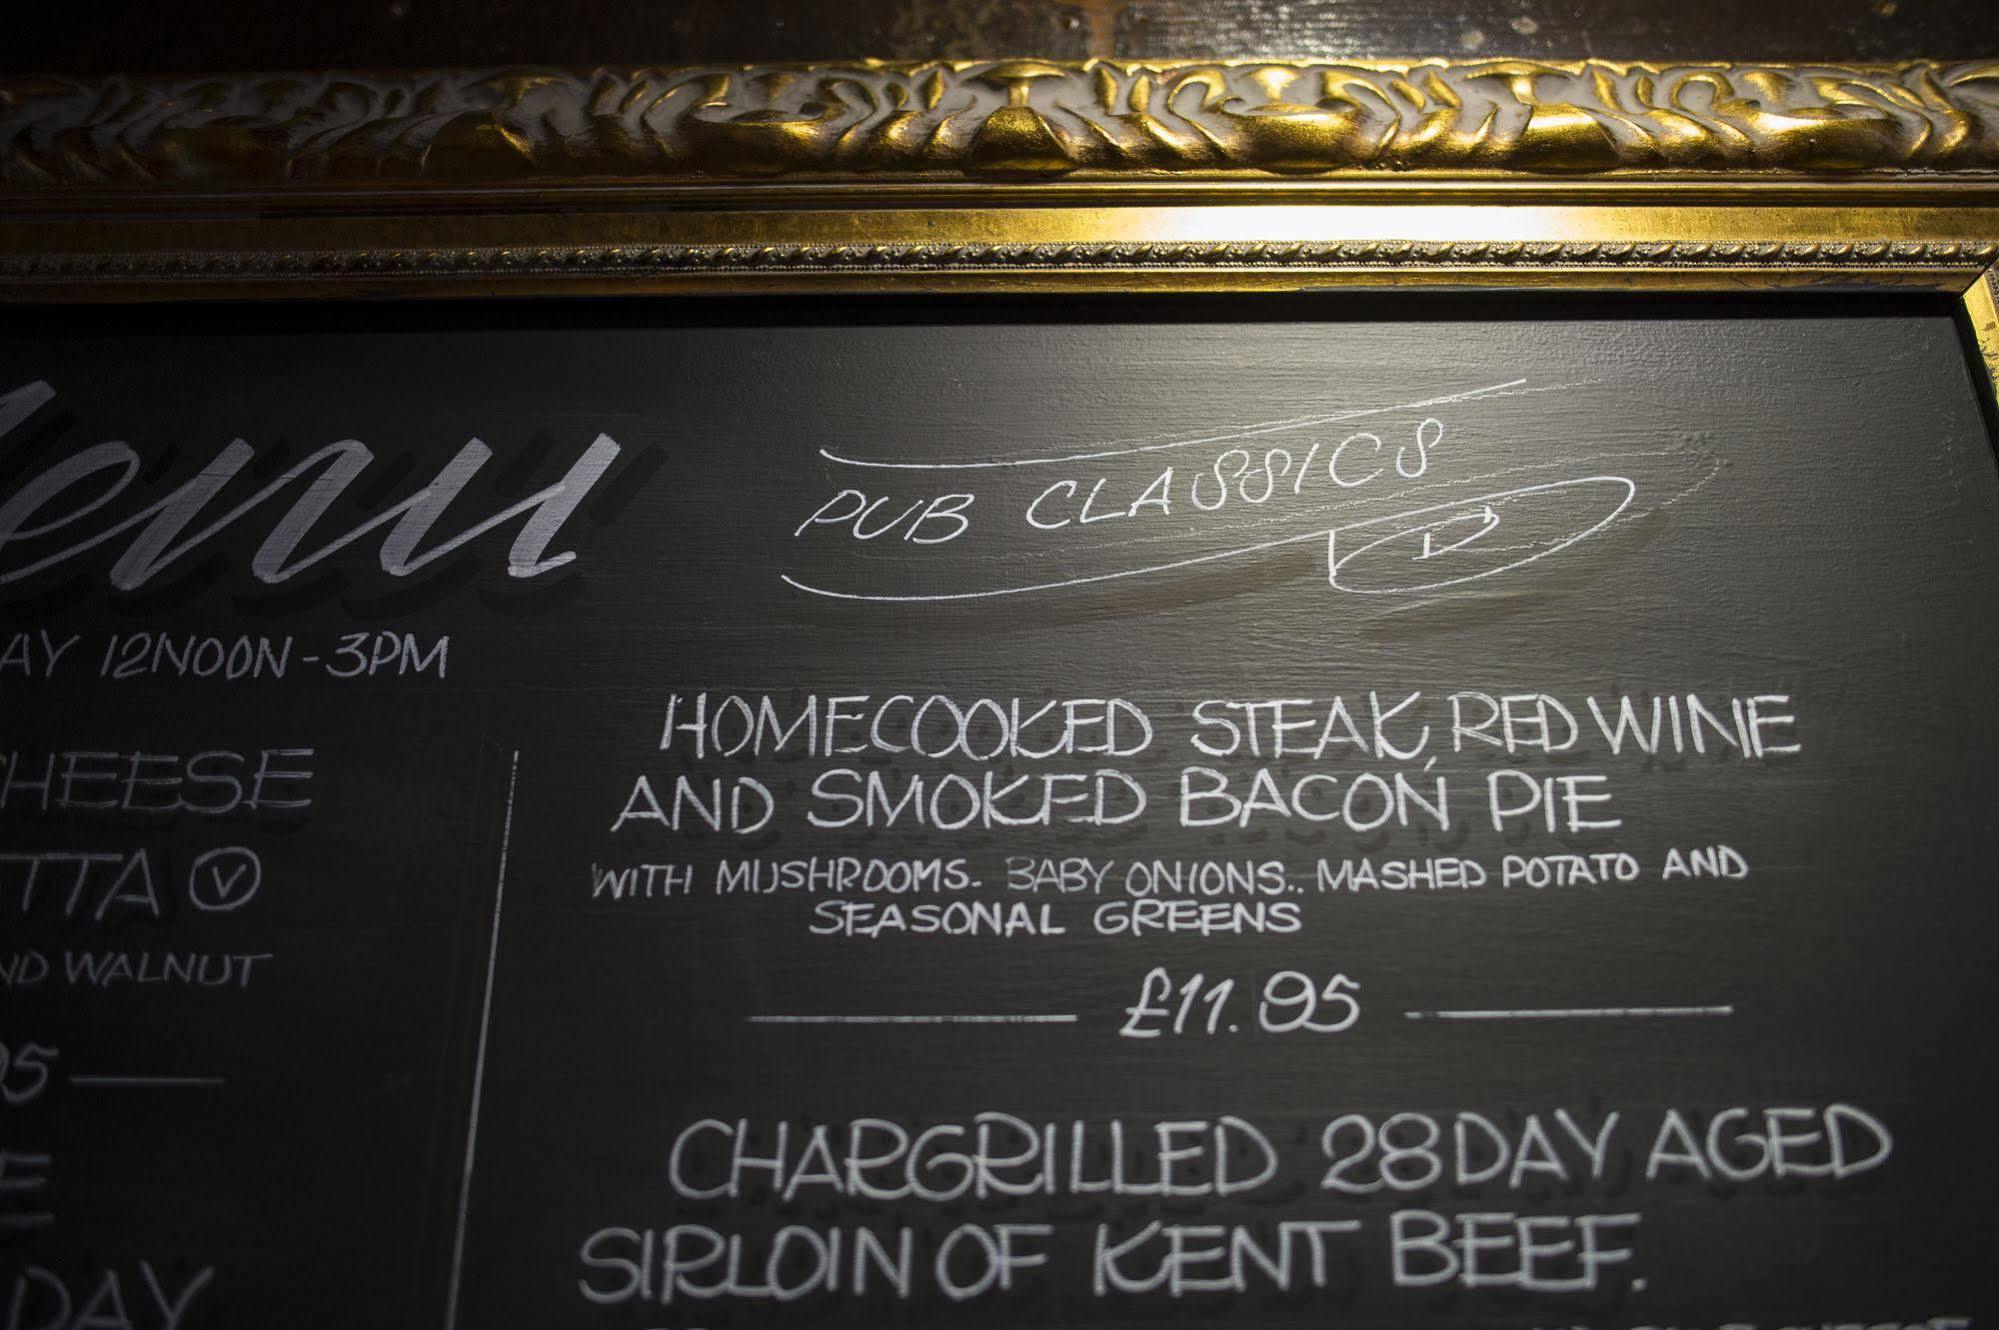 enu
AY 12NOON-3PM
HEESE
TTA V
ND WALNUT
95
E
DAY
PUB CLASSICS
HOMECOOKED STEAK, RED WINE
AND SMOKED BACON PIE
WITH MUSHROOMS. BABY ONIONS.. MASHED POTATO AND
SEASONAL GREENS
£11.95
CHARGRILLED 28 DAY AGED
SIRLOIN OF KENT BEEF.